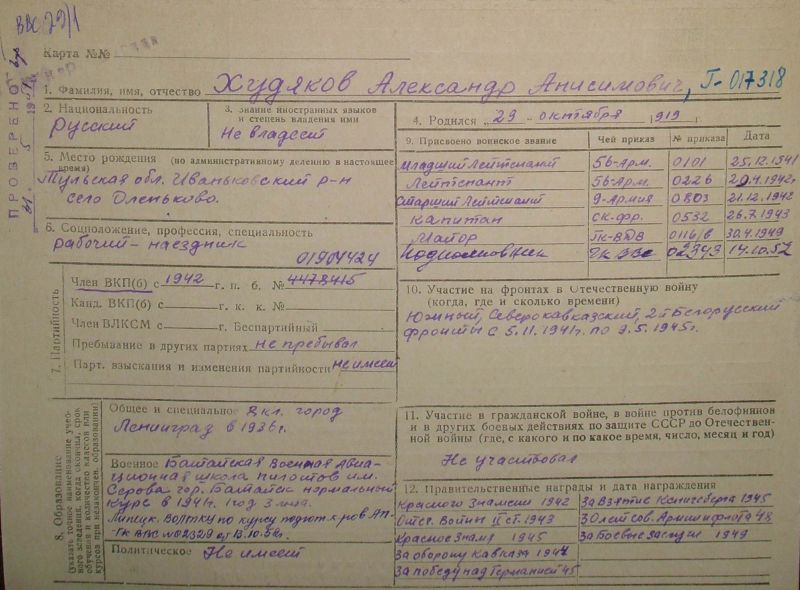 ВВС 29/1
Карта №№
ПРОВЕРЕНО
1. Фамилия, имя, отчество Худяков Александр Анисимович, Г-017318
2. Национальность
Русский
3. Знание иностранных языков
и степень владения ими
Не владеет
4. Родился „29 - октября 1919 г.
5. Место рождения (по административному делению в настоящее
время)
Тульская обл. Иваньковский р-н
село Оленьково.
6. Соцположение, профессия, специальность
рабочий - наездник
01904424
7. Партийность
Член ВКП(б) с 1942 г. п. б. № 4478415
Канд. ВКП(б) с г. к. к. №
Член ВЛКСМ с г. Беспартийный
Пребывание в других партиях не пребывал
Парт. взыскания и изменения партийности не имеет
8. Образование
(указать точное наименование учеб-
ного заведения, когда окончил, срок
обучения и количество классов или
курсов при незакончен. образовании)
Общее и специальное 8 кл. город
Ленинград в 1936 г.
Военное Батайская Военная Авиа-
ционная школа пилотов им.
Серова гор. Батайск нормальный
курс в 1941 г.
Политическое Не имеет
9. Присвоено воинское звание Чей приказ № приказа Дата
Младший Лейтенант 56-Арм. 0101 25.12.1941
Лейтенант 56-Арм. 0226 29.4.1942г.
Старший Лейтенант 9-Армия 0803 21.12.1942
Капитан СК-фр. 0532 26.7.1943
Майор ГК-ВДВ 0116/в 30.4.1949
Подполковник 02343 14.10.52
10. Участие на фронтах в Отечественную войну
(когда, где и сколько времени)
Южный, Северокавказский, 2й Белорусский
фронты с 5.11.1941г. по 9.5.1945г.
11. Участие в гражданской войне, в войне против белофиннов
и в других боевых действиях по защите СССР до Отечествен-
ной войны (где, с какого и по какое время, число, месяц и год)
Не участвовал
12. Правительственные награды и дата награждения
Красного Знамени 1942 За Взятие Кенигсберга 1945
Отеч. Войны II ст. 1943 30 лет Сов. Армии и флота 48
Красное Знамя 1945 За Боевые Заслуги 1949
За оборону Кавказа 1944
За победу над Германией 45